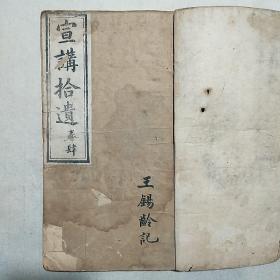 宣講拾遺
卷肆
王錫齡記